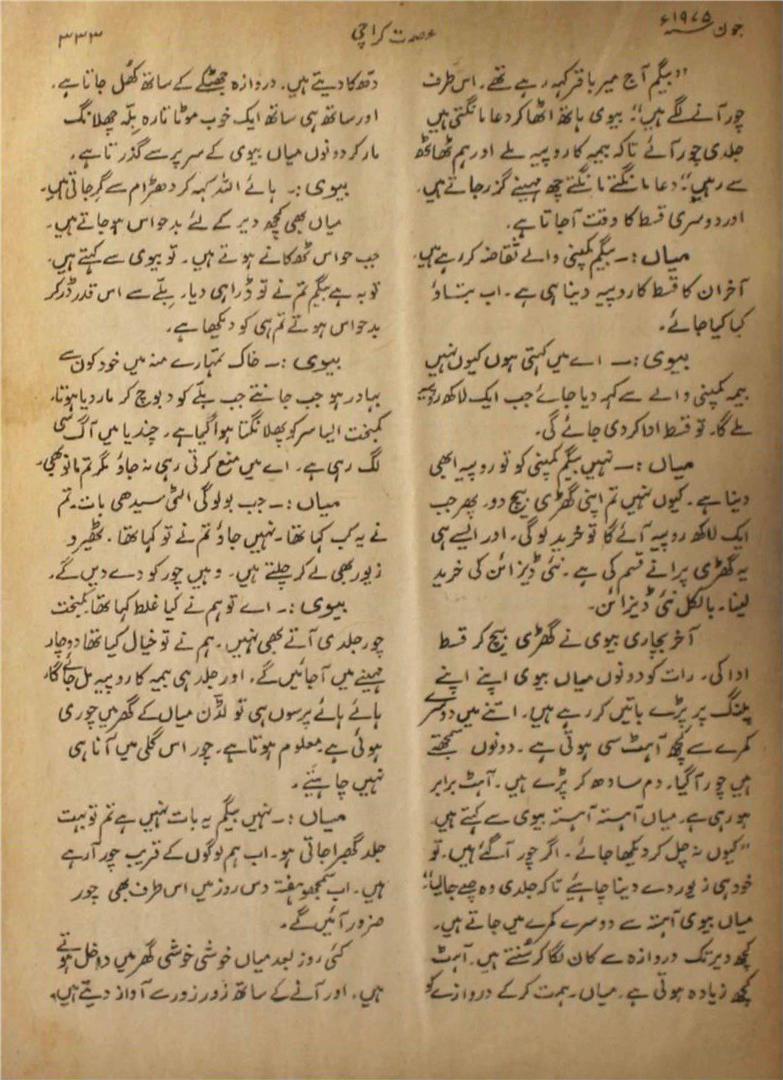 جون ۱۹۷۵ء
عصمت کراچی
۳۳۳
"بیگم آج میر باقر کہہ رہے تھے۔ اس طرف
چور آنے لگے ہیں"؛ بیوی ہاتھ اٹھا کر دعا مانگتی ہیں
جلدی چور آئے تاکہ بیمہ کا روپیہ ملے اور ہم ٹھاٹھ
سے رہیں"؛ دعا مانگتے مانگتے چھ مہینے گزر جاتے ہیں۔
اور دوسری قسط کا وقت آجاتا ہے۔
میاں :۔ بیگم کمپنی والے تقاضہ کر رہے ہیں۔
آخر ان کا قسط کا روپیہ دینا ہی ہے۔ اب بتاؤ
کیا کیا جائے۔
بیوی :۔ اے میں کہتی ہوں کیوں نہیں
بیمہ کمپنی والے سے کہہ دیا جائے جب ایک لاکھ روپیہ
ملے گا۔ تو قسط ادا کر دی جائے گی۔
میاں :۔ نہیں بیگم کمپنی کو تو روپیہ ابھی
دینا ہے۔ کیوں نہیں تم اپنی گھڑی بیچ دو۔ پھر جب
ایک لاکھ روپیہ آئے گا تو خرید لوگی۔ اور ایسے ہی
یہ گھڑی پرانے قسم کی ہے۔ نئی ڈیزائن کی خرید
لینا۔ بالکل نئی ڈیزائن۔
آخر بچاری بیوی نے گھڑی بیچ کر قسط
ادا کی۔ رات کو دونوں میاں بیوی اپنے اپنے
پلنگ پر پڑے باتیں کر رہے ہیں۔ اتنے میں دوسرے
کمرے سے کچھ آہٹ سی ہوتی ہے۔ دونوں سمجھتے
ہیں چور آگیا۔ دم سادھ کر پڑے ہیں۔ آہٹ برابر
ہو رہی ہے۔ میاں آہستہ آہستہ بیوی سے کہتے ہیں۔
"کیوں نہ چل کر دیکھا جائے۔ اگر چور آگئے ہیں۔ تو
خود ہی زیور دے دینا چاہیئے تاکہ جلدی وہ چلے جائیں"؛
میاں بیوی آہستہ سے دوسرے کمرے میں جاتے ہیں۔
کچھ دیر تک دروازہ سے کان لگا کر سنتے ہیں۔ آہٹ
کچھ زیادہ ہوتی ہے۔ میاں ہمت کر کے دروازے کو
دھکا دیتے ہیں۔ دروازہ جھٹکے کے ساتھ کھل جاتا ہے۔
اور ساتھ ہی ساتھ ایک خوب موٹا تازہ بلّہ چھلانگ
مار کر دونوں میاں بیوی کے سر پر سے گذرتا ہے۔
بیوی :۔ ہائے اللہ کہہ کر دھڑام سے گر جاتی ہیں۔
میاں بھی کچھ دیر کے لئے بدحواس ہو جاتے ہیں۔
جب حواس ٹھکانے ہوتے ہیں۔ تو بیوی سے کہتے ہیں۔
توبہ ہے بیگم تم نے تو ڈرا ہی دیا۔ بلّے سے اس قدر ڈر کر
بدحواس ہوتے تم ہی کو دیکھا ہے۔
بیوی :۔ خاک تمہارے منہ میں خود کون سے
بہادر ہو جب جانتے جب بلّے کو دبوچ کر مار دیا ہوتا۔
کمبخت ایسا سر کو پھلانگتا ہوا گیا ہے۔ چندیا میں آگ سی
لگ رہی ہے۔ اے میں منع کرتی رہی نہ جاؤ مگر تم مانو بھی۔
میاں :۔ جب بولوگی الٹی سیدھی بات۔ تم
نے یہ کب کہا تھا۔ نہیں جاؤ تم نے تو کہا تھا۔ ٹھیرو
زیور بھی لے کر چلتے ہیں۔ وہیں چور کو دے دیں گے۔
بیوی :۔ اے تو ہم نے کیا غلط کہا تھا کمبخت
چور جلدی آتے بھی نہیں۔ ہم نے تو خیال کیا تھا دو چار
مہینے میں آجائیں گے۔ اور جلد ہی بیمہ کا روپیہ مل جائے گا۔
ہائے ہائے پرسوں ہی تو لڈن میاں کے گھر میں چوری
ہوئی ہے معلوم ہوتا ہے۔ چور اس گلی میں آنا ہی
نہیں چاہتے۔
میاں :۔ نہیں بیگم یہ بات نہیں ہے تم تو بہت
جلد گھبرا جاتی ہو۔ اب ہم لوگوں کے قریب چور آرہے
ہیں۔ اب سمجھو ہفتہ دس روز میں اس طرف بھی چور
ضرور آئیں گے۔
کئی روز بعد میاں خوشی خوشی گھر میں داخل ہوتے
ہیں۔ اور آنے کے ساتھ زور زور سے آواز دیتے ہیں۔